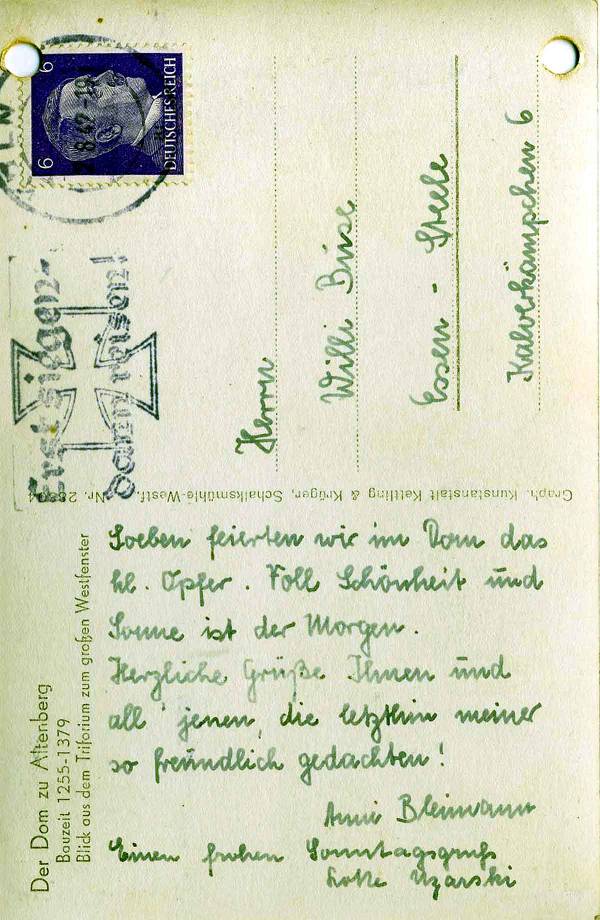 6
6
DEUTSCHES REICH
8.42-19
Erst siegen-
dann reisen!
Herrn
Willi Buse
Essen - Steele
Kalverkämpchen 6
Graph. Kunstanstalt Kettling & Krüger, Schalksmühle-Westf. Nr.
Der Dom zu Altenberg
Bauzeit 1255-1379
Blick aus dem Triforium zum großen Westfenster
Soeben feierten wir im Dom das
hl. Opfer. Voll Schönheit und
Sonne ist der Morgen.
Herzliche Grüße Ihnen und
all' jenen, die letzthin meiner
so freundlich gedachten!
Anni Bleimann
Einen frohen Sonntagsgruß
Lotte Uzarski